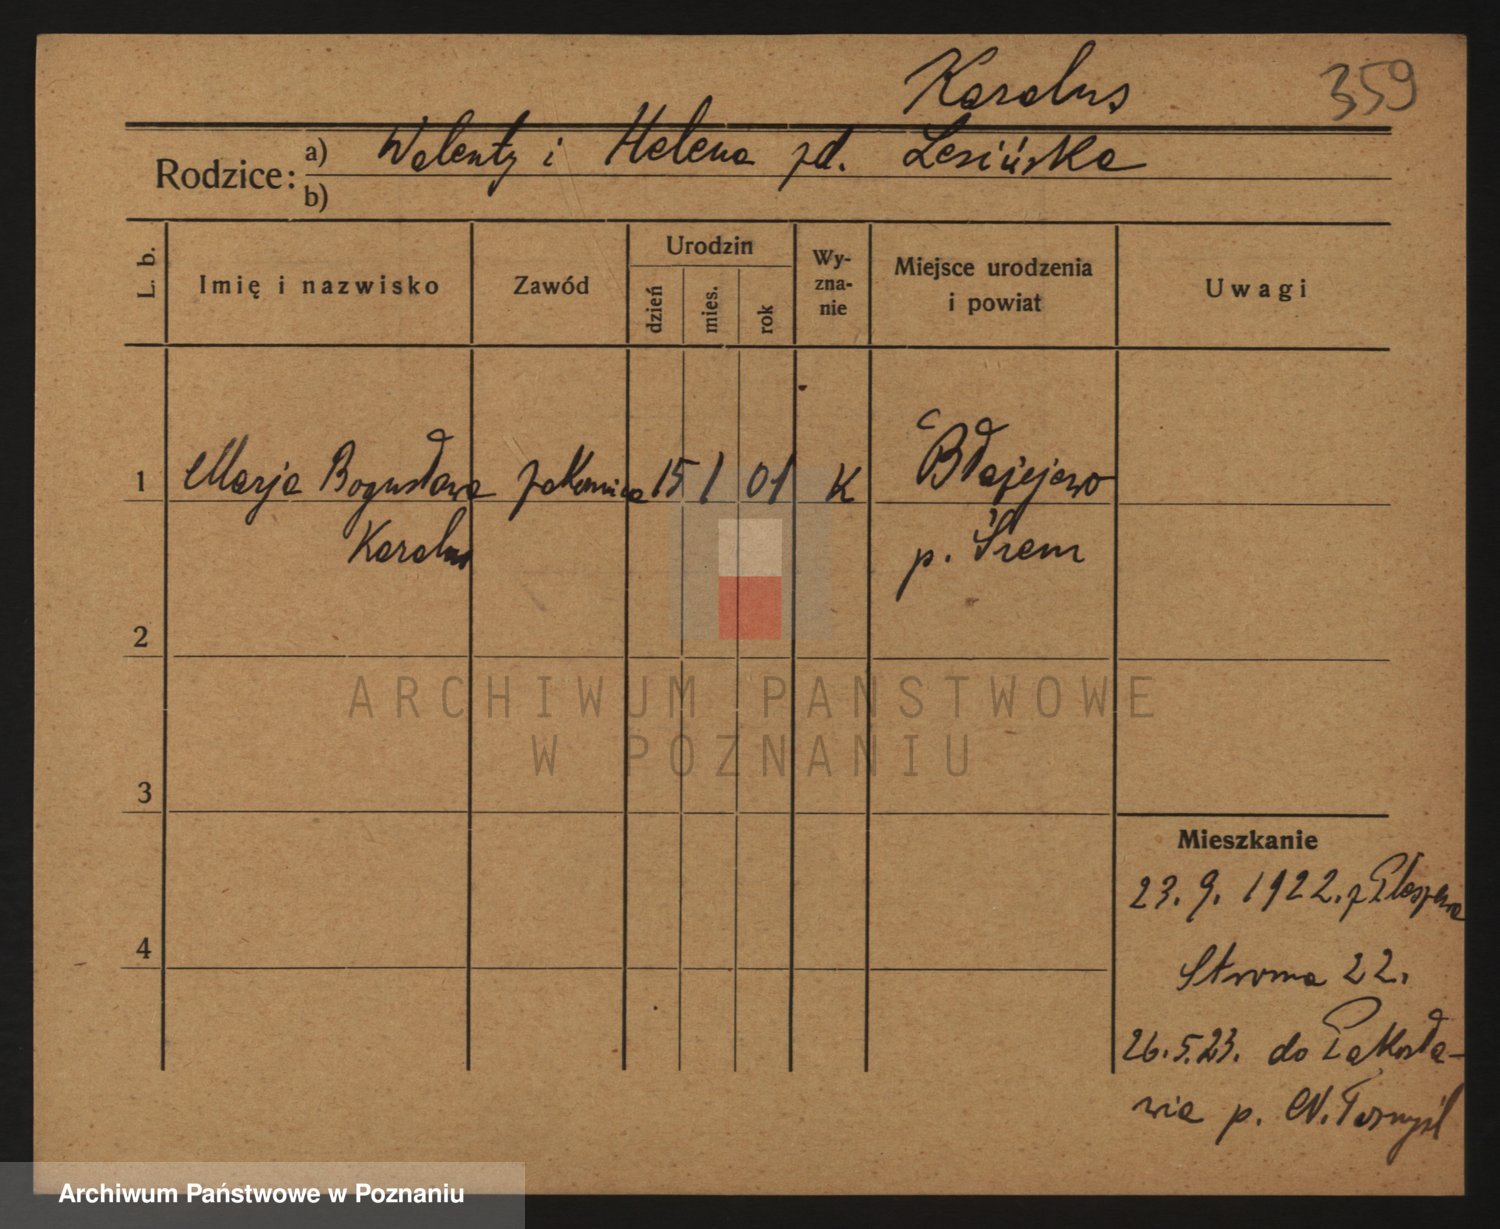 Karolus 359
Rodzice: a) Walenty i Helena zd. Lesińska
b)
L. b. Imię i nazwisko Zawód Urodzin dzień mies. rok Wy-zna-nie Miejsce urodzenia i powiat Uwagi
1 Marja Bogusława zakonnica 15 1 01 K Błażejewo
Karolus p. Śrem
2
3
4
Mieszkanie
23. 9. 1922. z
Stroma 22.
26.5.23. do Pakosła-
wia p. N. Tomyśl
ARCHIWUM PAŃSTWOWE
W POZNANIU
Archiwum Państwowe w Poznaniu